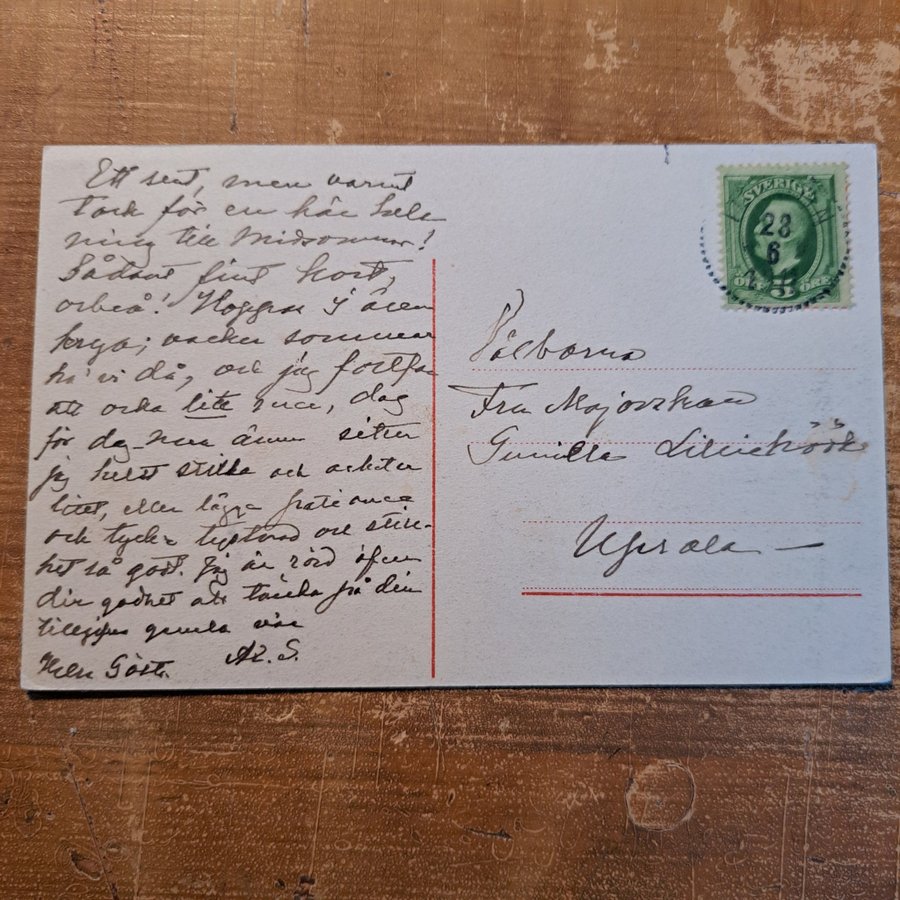 Ett sent, men varmt
tack för en kär hels
ning till Midsommar!
Sådant fint kort,
också! Hoppas I ären
krya; vacker sommar
ha' vi då, och jag fortfar
att orka lite mer, dag
för dag men ännu sitter
jag helst stilla och arbetar
litet, eller lägga patience
och tycka tystnad och still-
het så godt. Jag är rörd öfver
din godhet att tänka på din
tillgifna gamla vän
Hels Gösta. A. S.
SVERIGE
28
6
5
ÖRE
Välborna
Fru Majorskan
Gunilla Lilliehöök
Upsala —